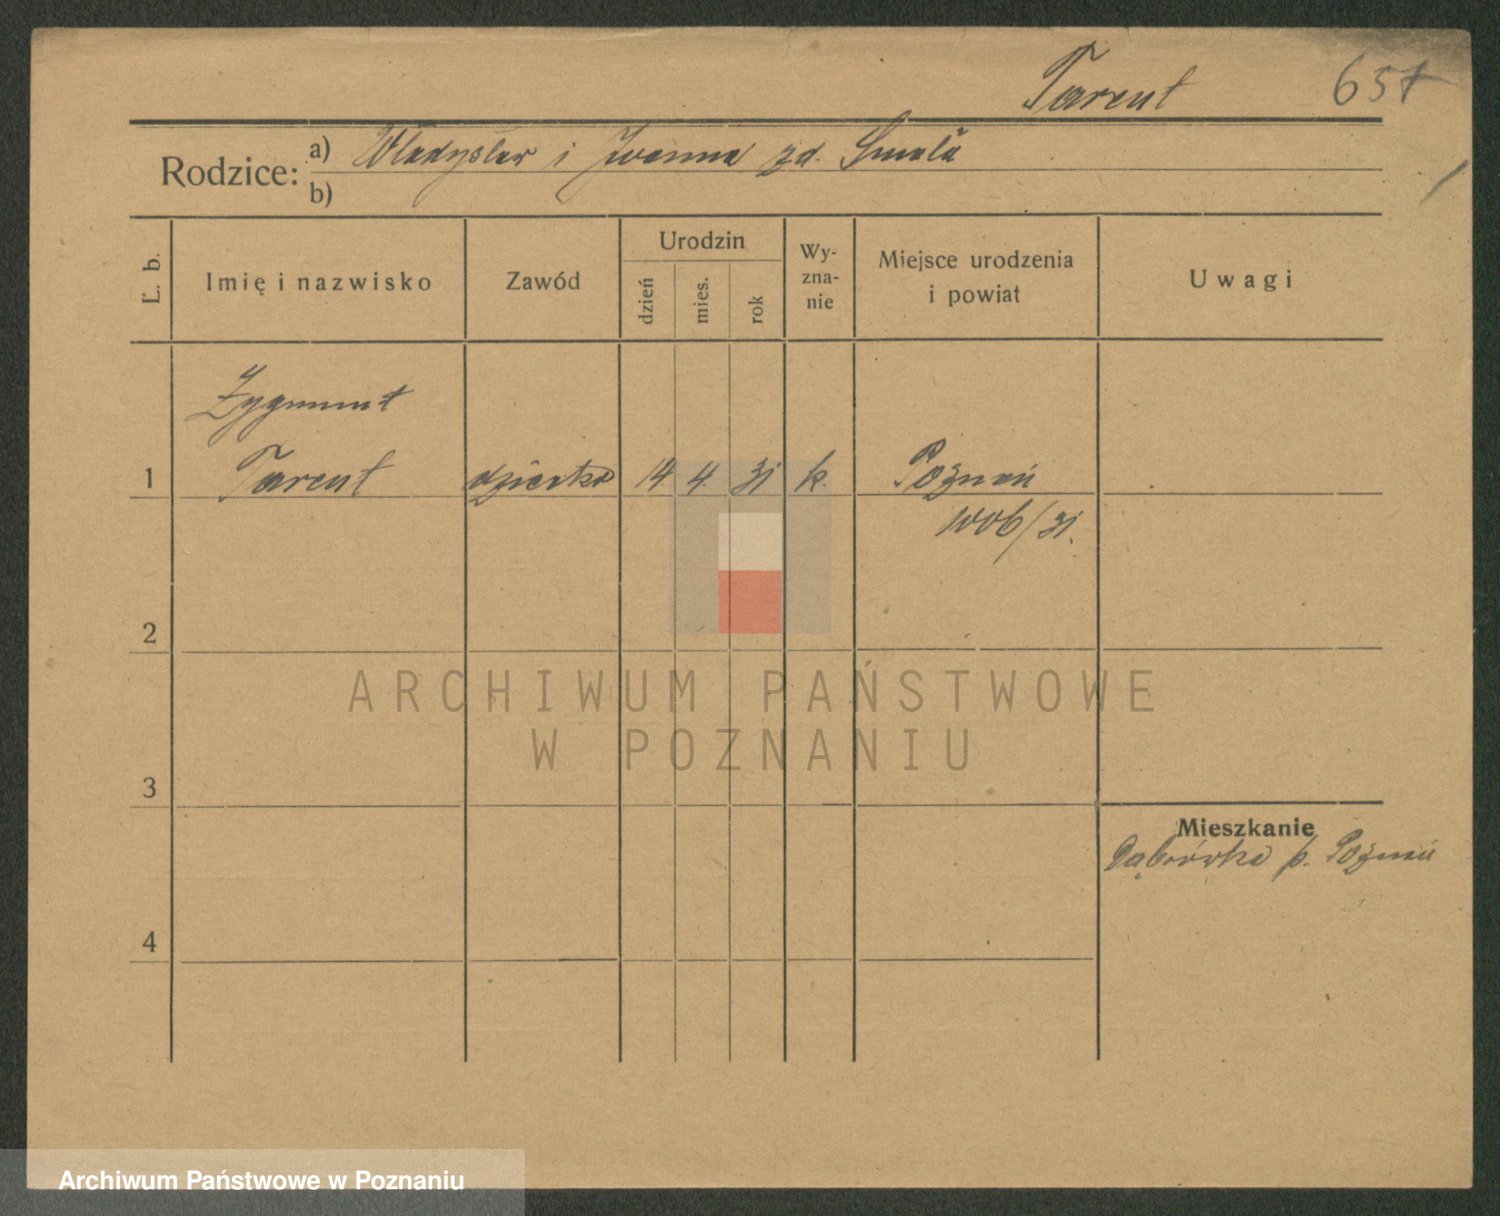 Tarent 657
Rodzice: a) Władysław i Joanna zd. Smoła
b)
L. b. Imię i nazwisko Zawód Urodzin dzień mies. rok Wy-zna-nie Miejsce urodzenia i powiat Uwagi
Zygmunt
1 Tarent dziecko 14 4. 31 k. Poznań
1006/31.
2
ARCHIWUM PAŃSTWOWE
W POZNANIU
3
Mieszkanie
Dąbrówka p. Poznań
4
Archiwum Państwowe w Poznaniu